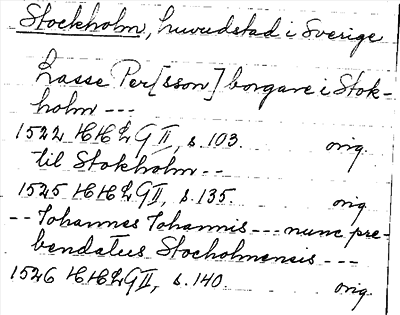 Stockholm, huvudstad i Sverige
Lasse Per[sson] borgare i Stok-
holm ---
1522 HH2GII, s. 103. orig.
til Stokholm --
1525 HH2GII, s. 135. orig.
-- Johannes Johannis --- nunc pre-
bendatus Stocholmensis ---
1526 HH2GII, s. 140. orig.